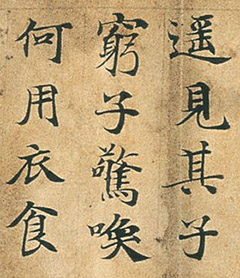 遥見其子
窮子驚喚
何用衣食